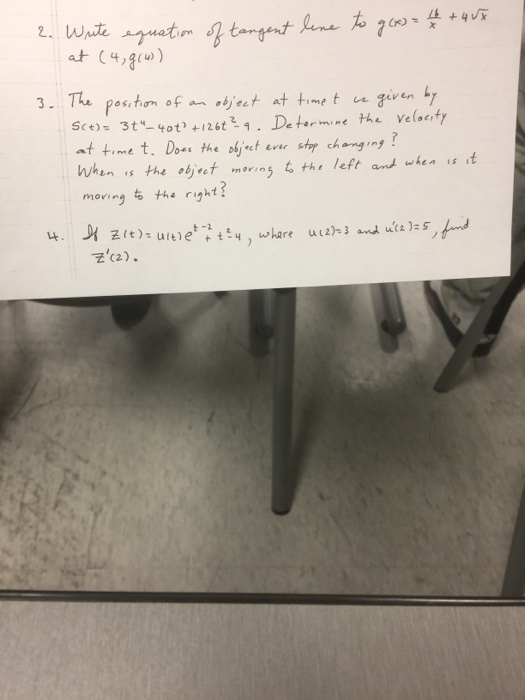 2. Write equation of tangent line to g(x) = 16/x + 4√x
at (4, g(4))
3. The position of an object at time t is given by
S(t) = 3t⁴ - 40t³ + 126t² - 9. Determine the velocity
at time t. Does the object ever stop changing?
When is the object moving to the left and when is it
moving to the right?
4. If z(t) = u(t)e^(t-2) + t² - 4, where u(2)=3 and u'(2)=5, find
z'(2).